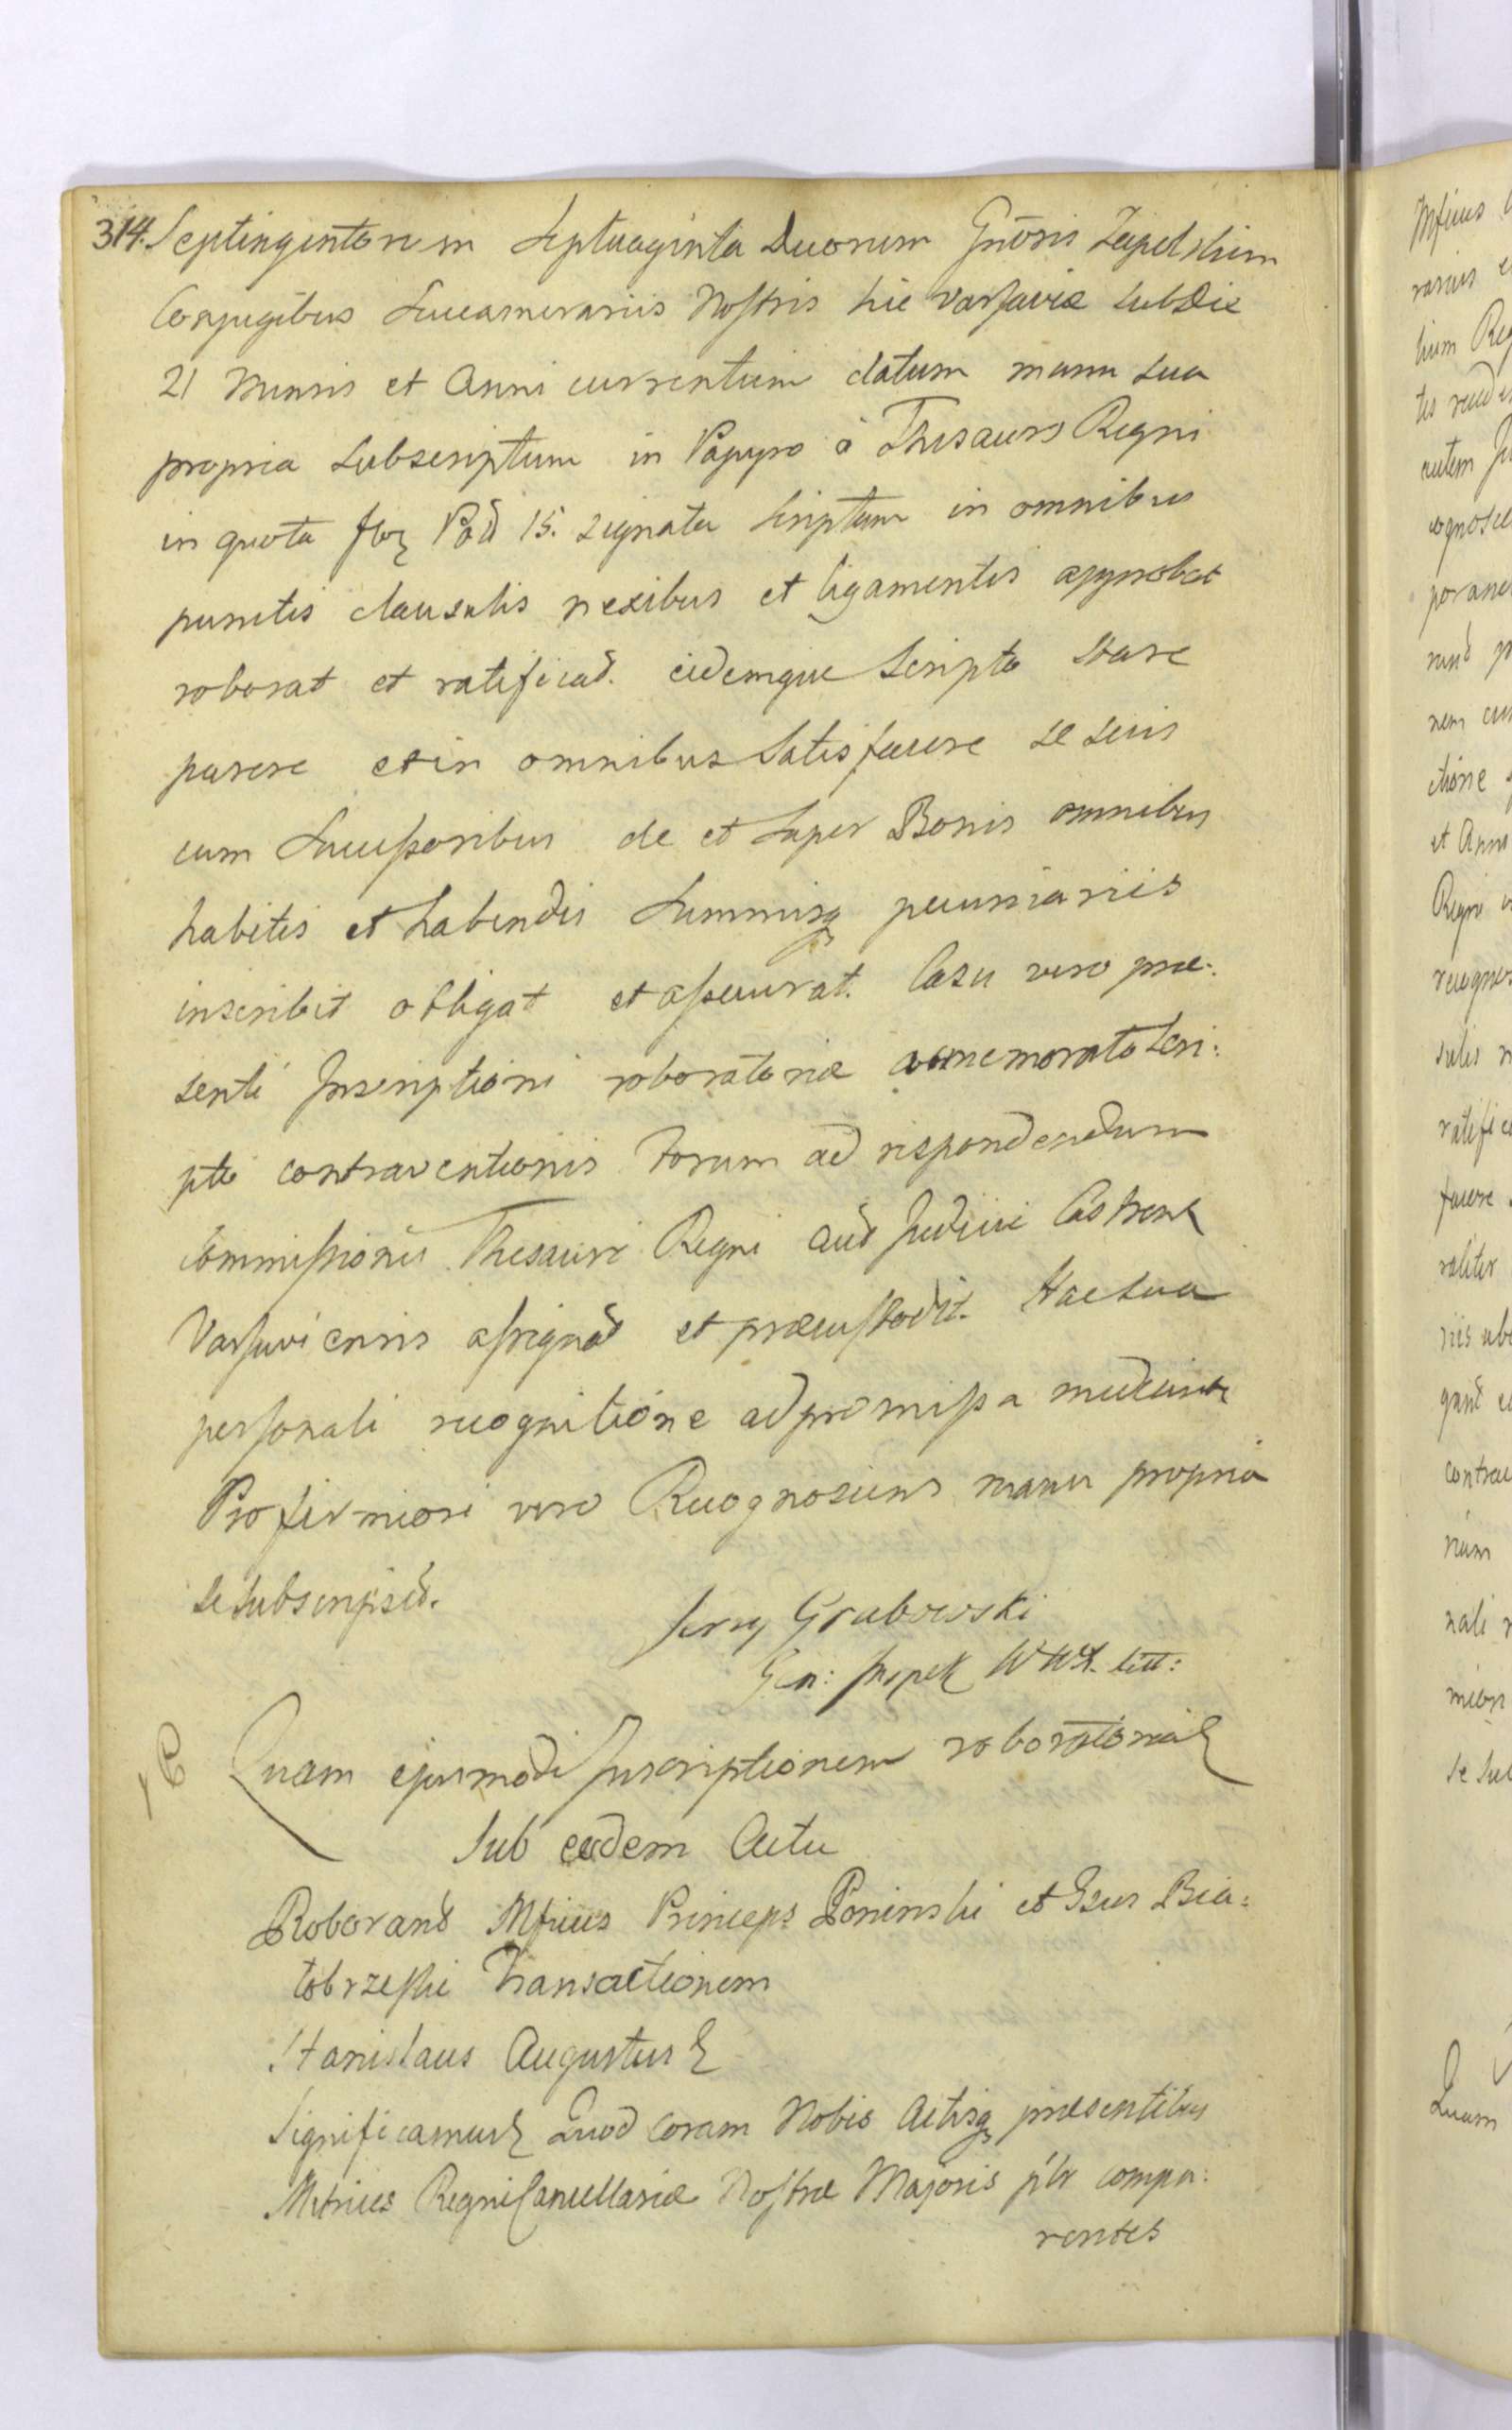 314. Septingentorum Septuaginta Duorum Gnôsis Zepelskim
Conjugibus Succamerariis Nostris hic Varsaviæ sub Die
21 Mensis et Anni currentium datum manu sua
propria Subscriptum in Papyro à Thesauro Regni
in quota flor Pol 15. signata scriptum in omnibus
punctis clausulis nexibus et ligamentis approbat
roborat et ratificat. eidemque Scripto stare
parere et in omnibus Satisfacere se suis
cum Successoribus de et Super Bonis omnibus
habitis et habendis Summisq pecuniariis
inscribit obligat et assecurat. Casu vero præ:
senti Inscriptioni roboratoriæ ac memorato Scri:
pto contraventionis Forum ad respondendum
Commissionis Thesauri Regni aut Judicii Castrens
Varsaviensis assignat et præcustodit. Hac sua
personali recognitione ad præmissa mediante
Pro firmiori vero Recognoscens manu propria
se subscripsit.
Jerzy Grabowski
Gen: Inspek W W X. Litt:
Quam ejusmodi Inscriptionem roboratoriam
Sub eodem Actu
Roborant Mficus Princeps Poninski et Gsus Bia:
tobrzeski Transactionem
Stanislaus Augustus
Significamus Quod coram Nobis Actisq præsentibus
Metrices Regni Cancellariæ Nostræ Majoris pltr compa:
rentes
Mficus
rarius
lium Reg
autem
et Anno
Regni
ratific
facere
raliter
contrav
rium
nali
miori
se Sub
Quam